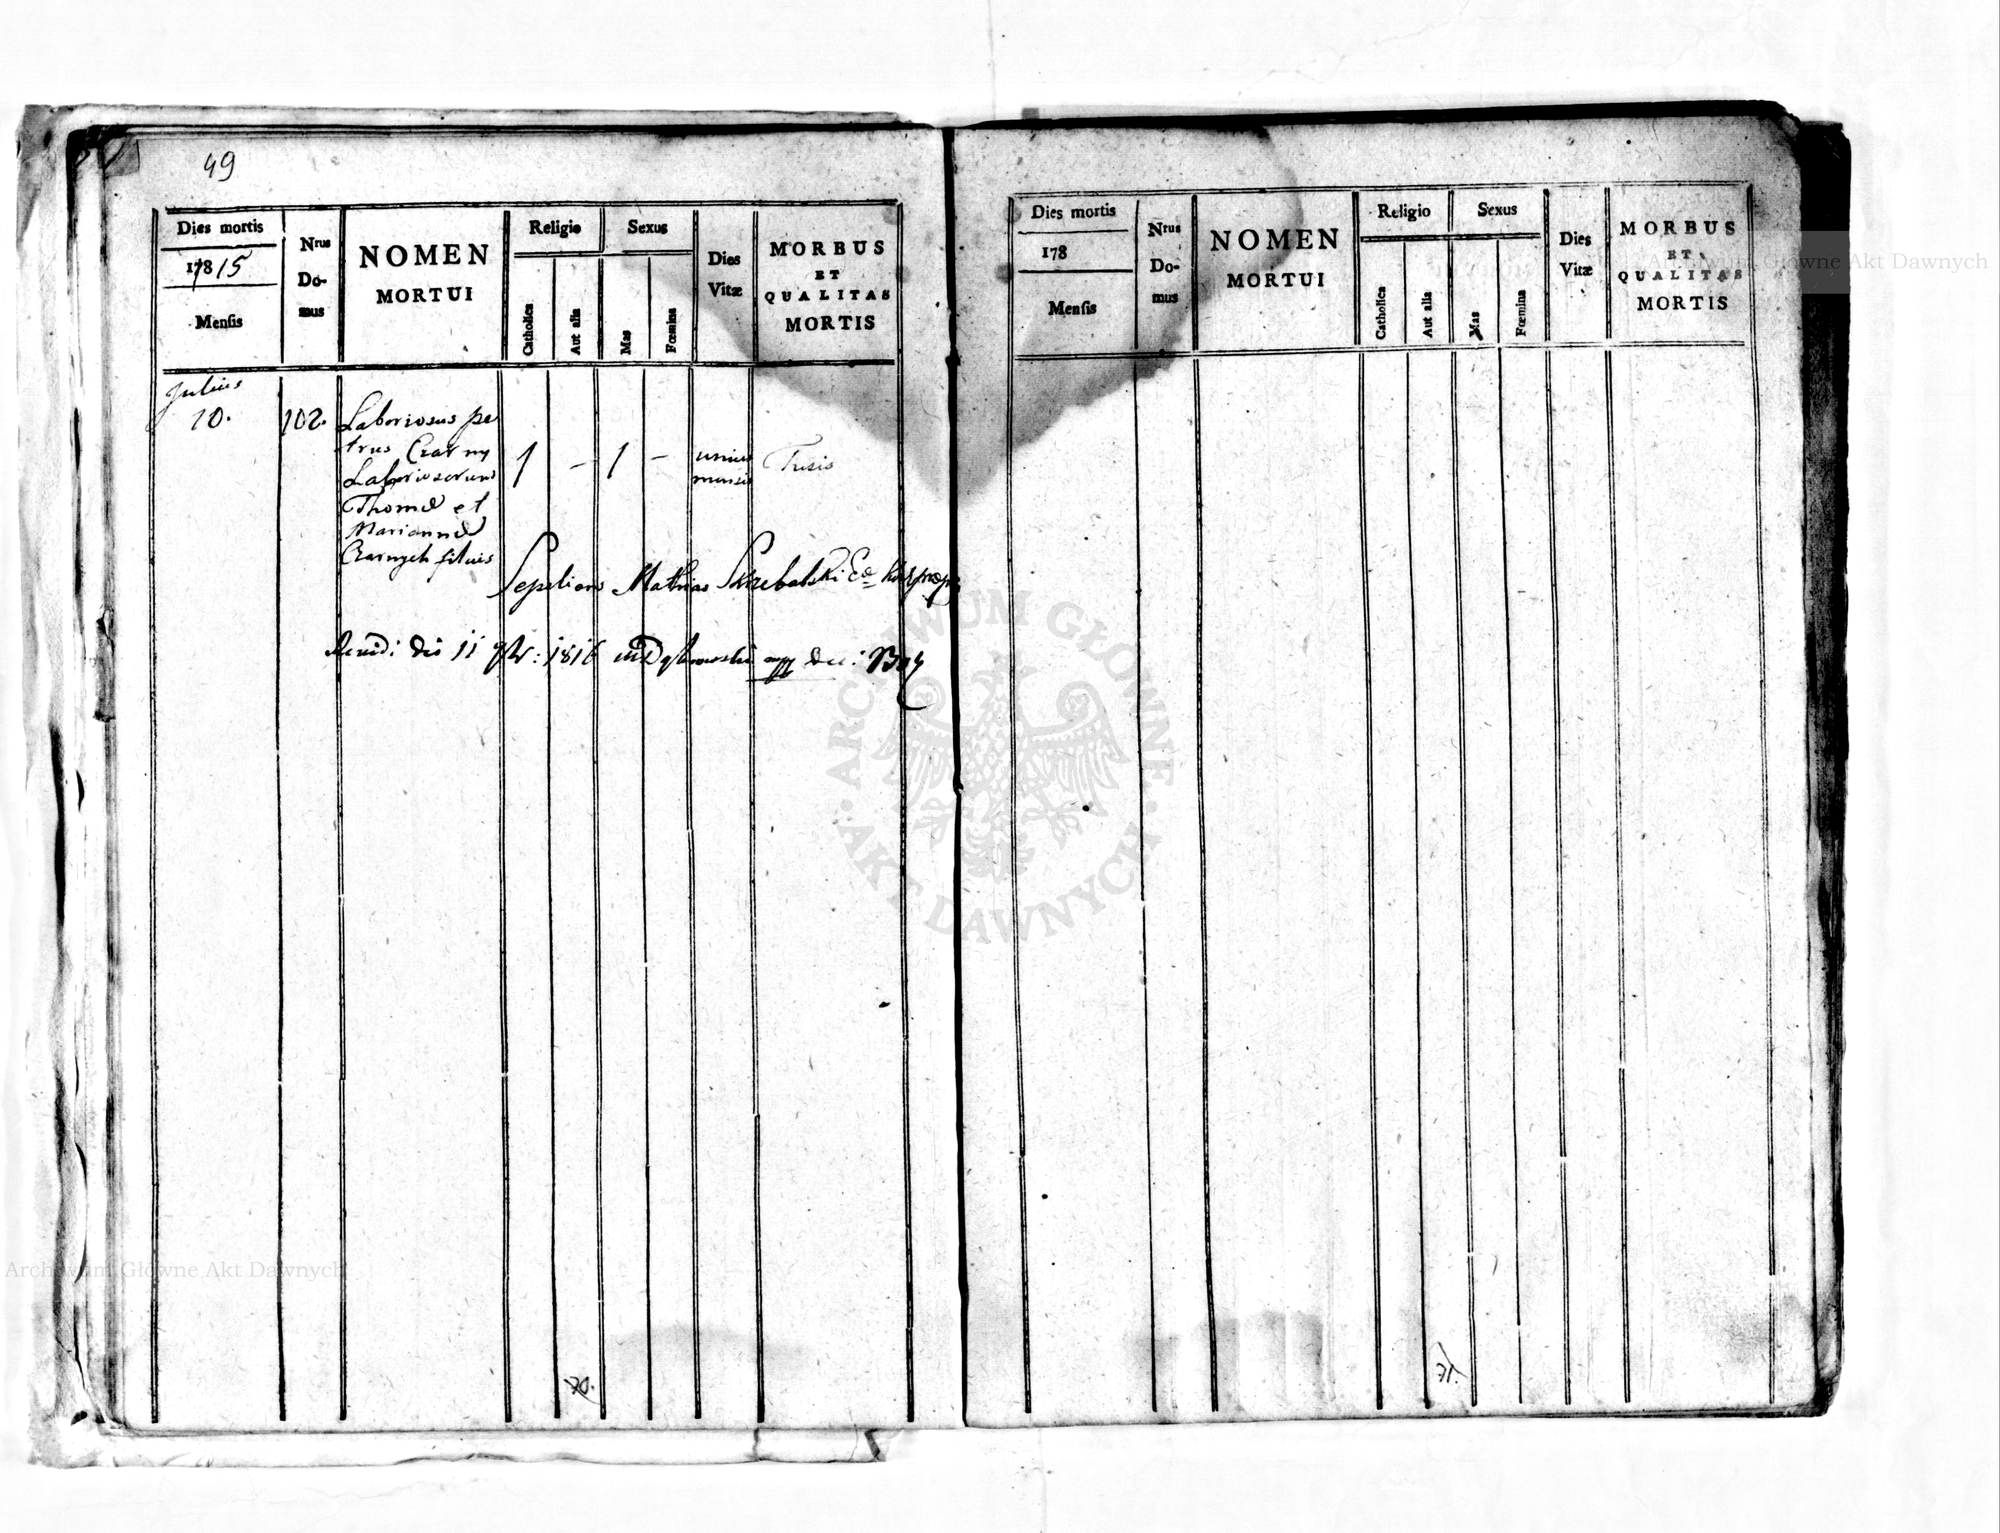 49
Dies mortis
17815
Mensis
Nrus
Do-
mus
NOMEN
MORTUI
Religio
Catholica
Aut alia
Sexus
Mas
Fœmina
Dies
Vitæ
MORBUS
ET
QUALITAS
MORTIS
Julius
10.
102.
Laboriosus pe
trus Czarny
Laboriosorum
Thomæ et
Mariannæ
Czarnych filius
1
–
1
–
unius
mensis
Tusis
Sepelions Mathias Skrebalski
die 11 1816 Dąbrowski
70.
Dies mortis
178
Mensis
Nrus
Do-
mus
NOMEN
MORTUI
Religio
Catholica
Aut alia
Sexus
Mas
Fœmina
Dies
Vitæ
MORBUS
ET
QUALITAS
MORTIS
71.
ARCHIWUM GŁÓWNE
AKT DAWNYCH
Archiwum Główne Akt Dawnych
Archiwum Główne Akt Dawnych